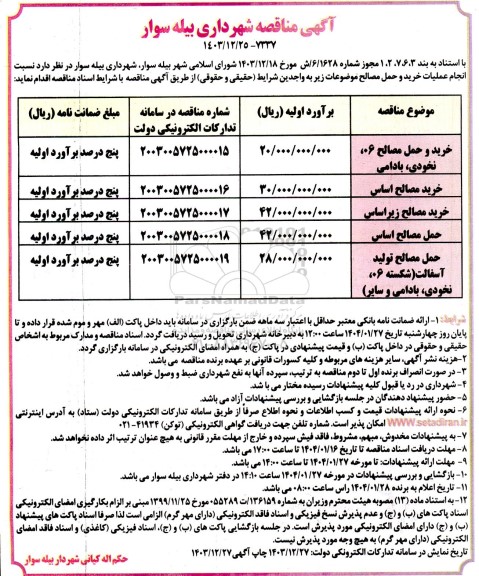 آگهی مناقصه شهرداری بیله سوار
۷۳۳۷- ۱۴۰۳/۱۲/۲۵
با استناد به بند ۱،۲،۷،۶،۳ مجوز شماره ۶/۱۶۲۸/ش مورخ ۱۴۰۳/۱۲/۱۸ شورای اسلامی شهر بیله سوار، شهرداری بیله سوار در نظر دارد نسبت
انجام عملیات خرید و حمل مصالح موضوعات زیر به واجدین شرایط (حقیقی و حقوقی) از طریق آگهی مناقصه با شرایط اسناد مناقصه اقدام نماید:
موضوع مناقصه | برآورد اولیه (ریال) | شماره مناقصه در سامانه تدارکات الکترونیکی دولت | مبلغ ضمانت نامه (ریال)
خرید و حمل مصالح ۰۶، نخودی، بادامی | ۲۰/۰۰۰/۰۰۰/۰۰۰ | ۲۰۰۳۰۰۵۷۲۵۰۰۰۰۱۵ | پنج درصد برآورد اولیه
خرید مصالح اساس | ۳۰/۰۰۰/۰۰۰/۰۰۰ | ۲۰۰۳۰۰۵۷۲۵۰۰۰۰۱۶ | پنج درصد برآورد اولیه
خرید مصالح زیراساس | ۴۲/۰۰۰/۰۰۰/۰۰۰ | ۲۰۰۳۰۰۵۷۲۵۰۰۰۰۱۷ | پنج درصد برآورد اولیه
حمل مصالح اساس | ۴۲/۰۰۰/۰۰۰/۰۰۰ | ۲۰۰۳۰۰۵۷۲۵۰۰۰۰۱۸ | پنج درصد برآورد اولیه
حمل مصالح تولید آسفالت(شکسته ۰۶، نخودی، بادامی و سایر) | ۲۸/۰۰۰/۰۰۰/۰۰۰ | ۲۰۰۳۰۰۵۷۲۵۰۰۰۰۱۹ | پنج درصد برآورد اولیه
ParsNamadData
شرایط: ۱- ارائه ضمانت نامه بانکی معتبر حداقل با اعتبار سه ماهه ضمن بارگزاری در سامانه باید داخل پاکت (الف) مهر و موم شده قرار داده و تا
پایان روز چهارشنبه تاریخ ۱۴۰۴/۰۱/۲۷ ساعت ۱۳:۰۰ به دبیرخانه شهرداری تحویل و رسید دریافت گردد. اسناد مناقصه و مدارک مربوط به اشخاص
حقیقی و حقوقی در داخل پاکت (ب) و قیمت پیشنهادی در پاکت (ج) به همراه امضای الکترونیکی در سامانه بارگزاری گردد.
۲-هزینه نشر آگهی، سایر هزینه های مربوطه و کلیه کسورات قانونی بر عهده برنده مناقصه می باشد.
۳- در صورت انصراف برنده اول تا دوم مناقصه به ترتیب، سپرده آنها به نفع شهرداری ضبط و وصول خواهد شد.
۴- شهرداری در رد یا قبول کلیه پیشنهادات رسیده مختار می باشد.
۵- حضور پیشنهاد دهندگان در جلسه بازگشایی و بررسی پیشنهادات آزاد می باشد.
۶- نحوه ارائه پیشنهادات قیمت و کسب اطلاعات و نحوه اطلاع صرفاً از طریق سامانه تدارکات الکترونیکی دولت (ستاد) به آدرس اینترنتی
www.setadiran.ir امکان پذیر است. شماره تلفن جهت دریافت گواهی الکترونیکی (توکن) ۴۱۹۳۴-۰۲۱
۷- به پیشنهادات مخدوش، مبهم، مشروط، فاقد فیش سپرده و خارج از مهلت مقرر قانونی به هیچ عنوان ترتیب اثر داده نخواهد شد.
۸- مهلت دریافت اسناد مناقصه تا تاریخ ۱۴۰۴/۰۱/۱۶ تا ساعت ۱۷:۰۰ می باشد.
۹- مهلت ارائه پیشنهادات: تا مورخه ۱۴۰۴/۰۱/۲۷ تا ساعت ۱۴:۰۰ می باشد.
۱۰- بازگشایی و بررسی پیشنهادات در مورخه ۱۴۰۴/۰۱/۲۷ ساعت ۱۴:۱۰ در دفتر شهرداری بیله سوار می باشد.
۱۱- تاریخ اعلام به برنده ۱۴۰۴/۰۱/۲۸ راس ساعت ۰۸:۰۰ می باشد.
۱۲-به استناد ماده (۱۳) مصوبه هیئت محترم وزیران به شماره ۱۳۶۱۵۹/ت۵۵۲۸۹ه مورخ ۱۳۹۹/۱۱/۲۵ مبنی بر الزام بکارگیری امضای الکترونیکی
اسناد پاکت های (ب) و (ج) و عدم پذیرش نسخ فیزیکی و اسناد فاقد امضای الکترونیکی (دارای مهر گرم) الزامی است لذا صرفا اسناد پاکت های پیشنهاد
(ب) و (ج) دارای امضای الکترونیکی مورد پذیرش است. در جلسه بازگشایی پاکت های (ب) و (ج)، اسناد فیزیکی (کاغذی) و اسناد فاقد امضای
الکترونیکی (دارای مهر گرم) به هیچ وجه مورد پذیرش نیست.
تاریخ نمایش در سامانه تدارکات الکترونکی دولت: ۱۴۰۳/۱۲/۲۷ چاپ آگهی ۱۴۰۳/۱۲/۲۷
حکم اله کیانی شهردار بیله سوار